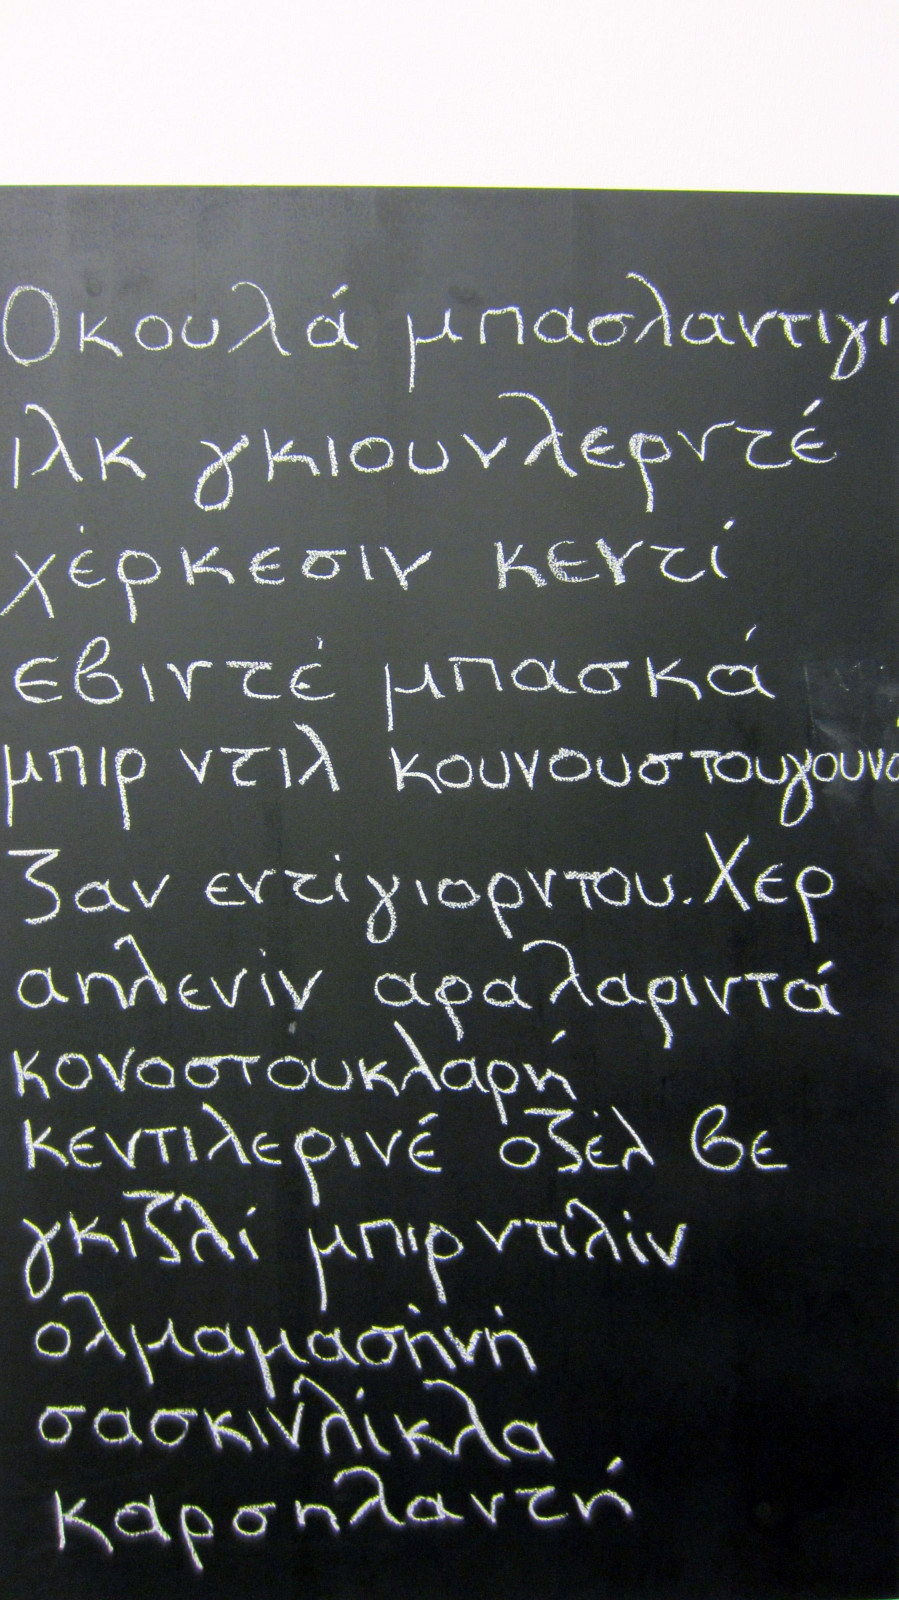 Οκουλά μπασλαντιγί
ιλκ γκιουνλερντέ
χέρκεσιν κεντί
εβιντέ μπασκά
μπιρ ντιλ κουνουστουγουνα
ζαν εντίγιορντου. Χερ
αηλενίν αραλαριντά
κονοστουκλαρή
κεντιλερινέ οζέλ βε
γκιζλί μπιρ ντιλίν
ολμαμασήνή
σασκινλίκλα
καρσηλαντή